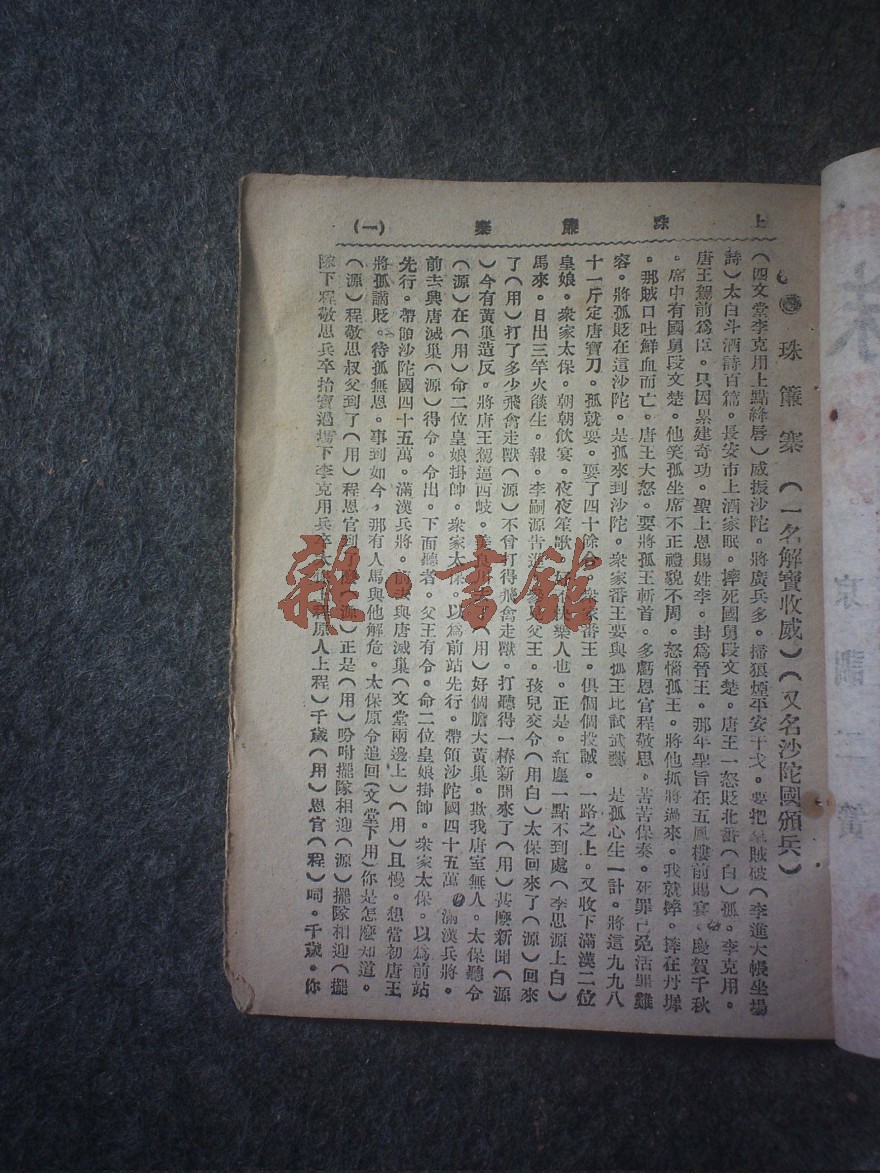 上 珠簾寨 (一)
珠簾寨(一名解寶收威)(又名沙陀國頒兵)
(四文堂李克用上點絳唇)威振沙陀。將廣兵多。掃狼煙平安干戈。要把 賊破(李進大帳坐塲
詩)太白斗酒詩百篇。長安市上酒家眠。摔死國舅段文楚。唐王一怒貶北番(白)孤。李克用。
唐王駕前爲臣。只因累建奇功。聖上恩賜姓李。封爲晉王。那年聖旨在五鳳樓前賜宴。慶賀千秋
。席中有國舅段文楚。他笑孤坐席不正禮貌不周。怒惱孤王。將他抓將過來。我就摔。摔在丹墀
。那賊口吐鮮血而亡。唐王大怒。要將孤王斬首。多虧恩官程敬思。苦苦保奏。死罪 免活罪難
容。將孤貶在這沙陀。是孤來到沙陀。衆家番王要與孤王比試武藝 是孤心生一計。將這九九八
十一斤定唐寶刀。孤就耍。耍了四十餘合。衆家番王。俱個個投誠。一路之上。又收下滿漢二位
皇娘。衆家太保。朝朝飲宴。夜夜笙歌。好 快樂人也。正是。紅塵一點不到處(李思源上白)
馬來。日出三竿火燄生。報。李嗣源告進。 見父王。孩兒交令(用白)太保回來了(源)回來
了(用)打了多少飛禽走獸(源)不曾打得飛禽走獸。打聽得一樁新聞來了(用)甚麼新聞(源
)今有黃巢造反。將唐王駕逼西岐。 (用)好個膽大黃巢。欺我唐室無人。太保聽令
(源)在(用)命二位皇娘掛帥。衆家太保。以爲前站先行。帶領沙陀國四十五萬。滿漢兵將。
前去興唐滅巢(源)得令。令出。下面聽者。父王有令。命二位皇娘掛帥。衆家太保。以爲前站
先行。帶領沙陀國四十五萬。滿漢兵將。前去興唐滅巢(文堂兩邊上)(用)且慢。想當初唐王
將孤謫貶。待孤無恩。事到如今。那有人馬與他解危。太保原令追回(文堂下用)你是怎麼知道。
(源)程敬思叔父到了(用)程恩官到 (源)正是(用)吩咐擺隊相迎(源)擺隊相迎(擺
隊下程敬思兵卒抬寶過塲下李克用兵卒 原人上程)千歲(用)恩官(程)呵。千歲。你
雜·書館
京調二簧